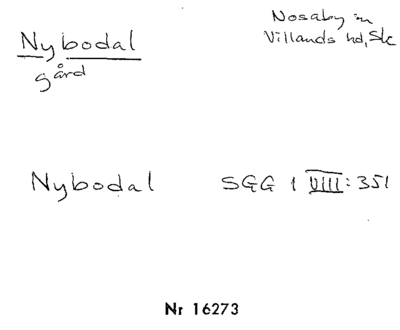 Nybodal
gård
Nosaby sn
Villands hd, Sk
Nybodal SGG 1 VIII: 351
Nr 16273